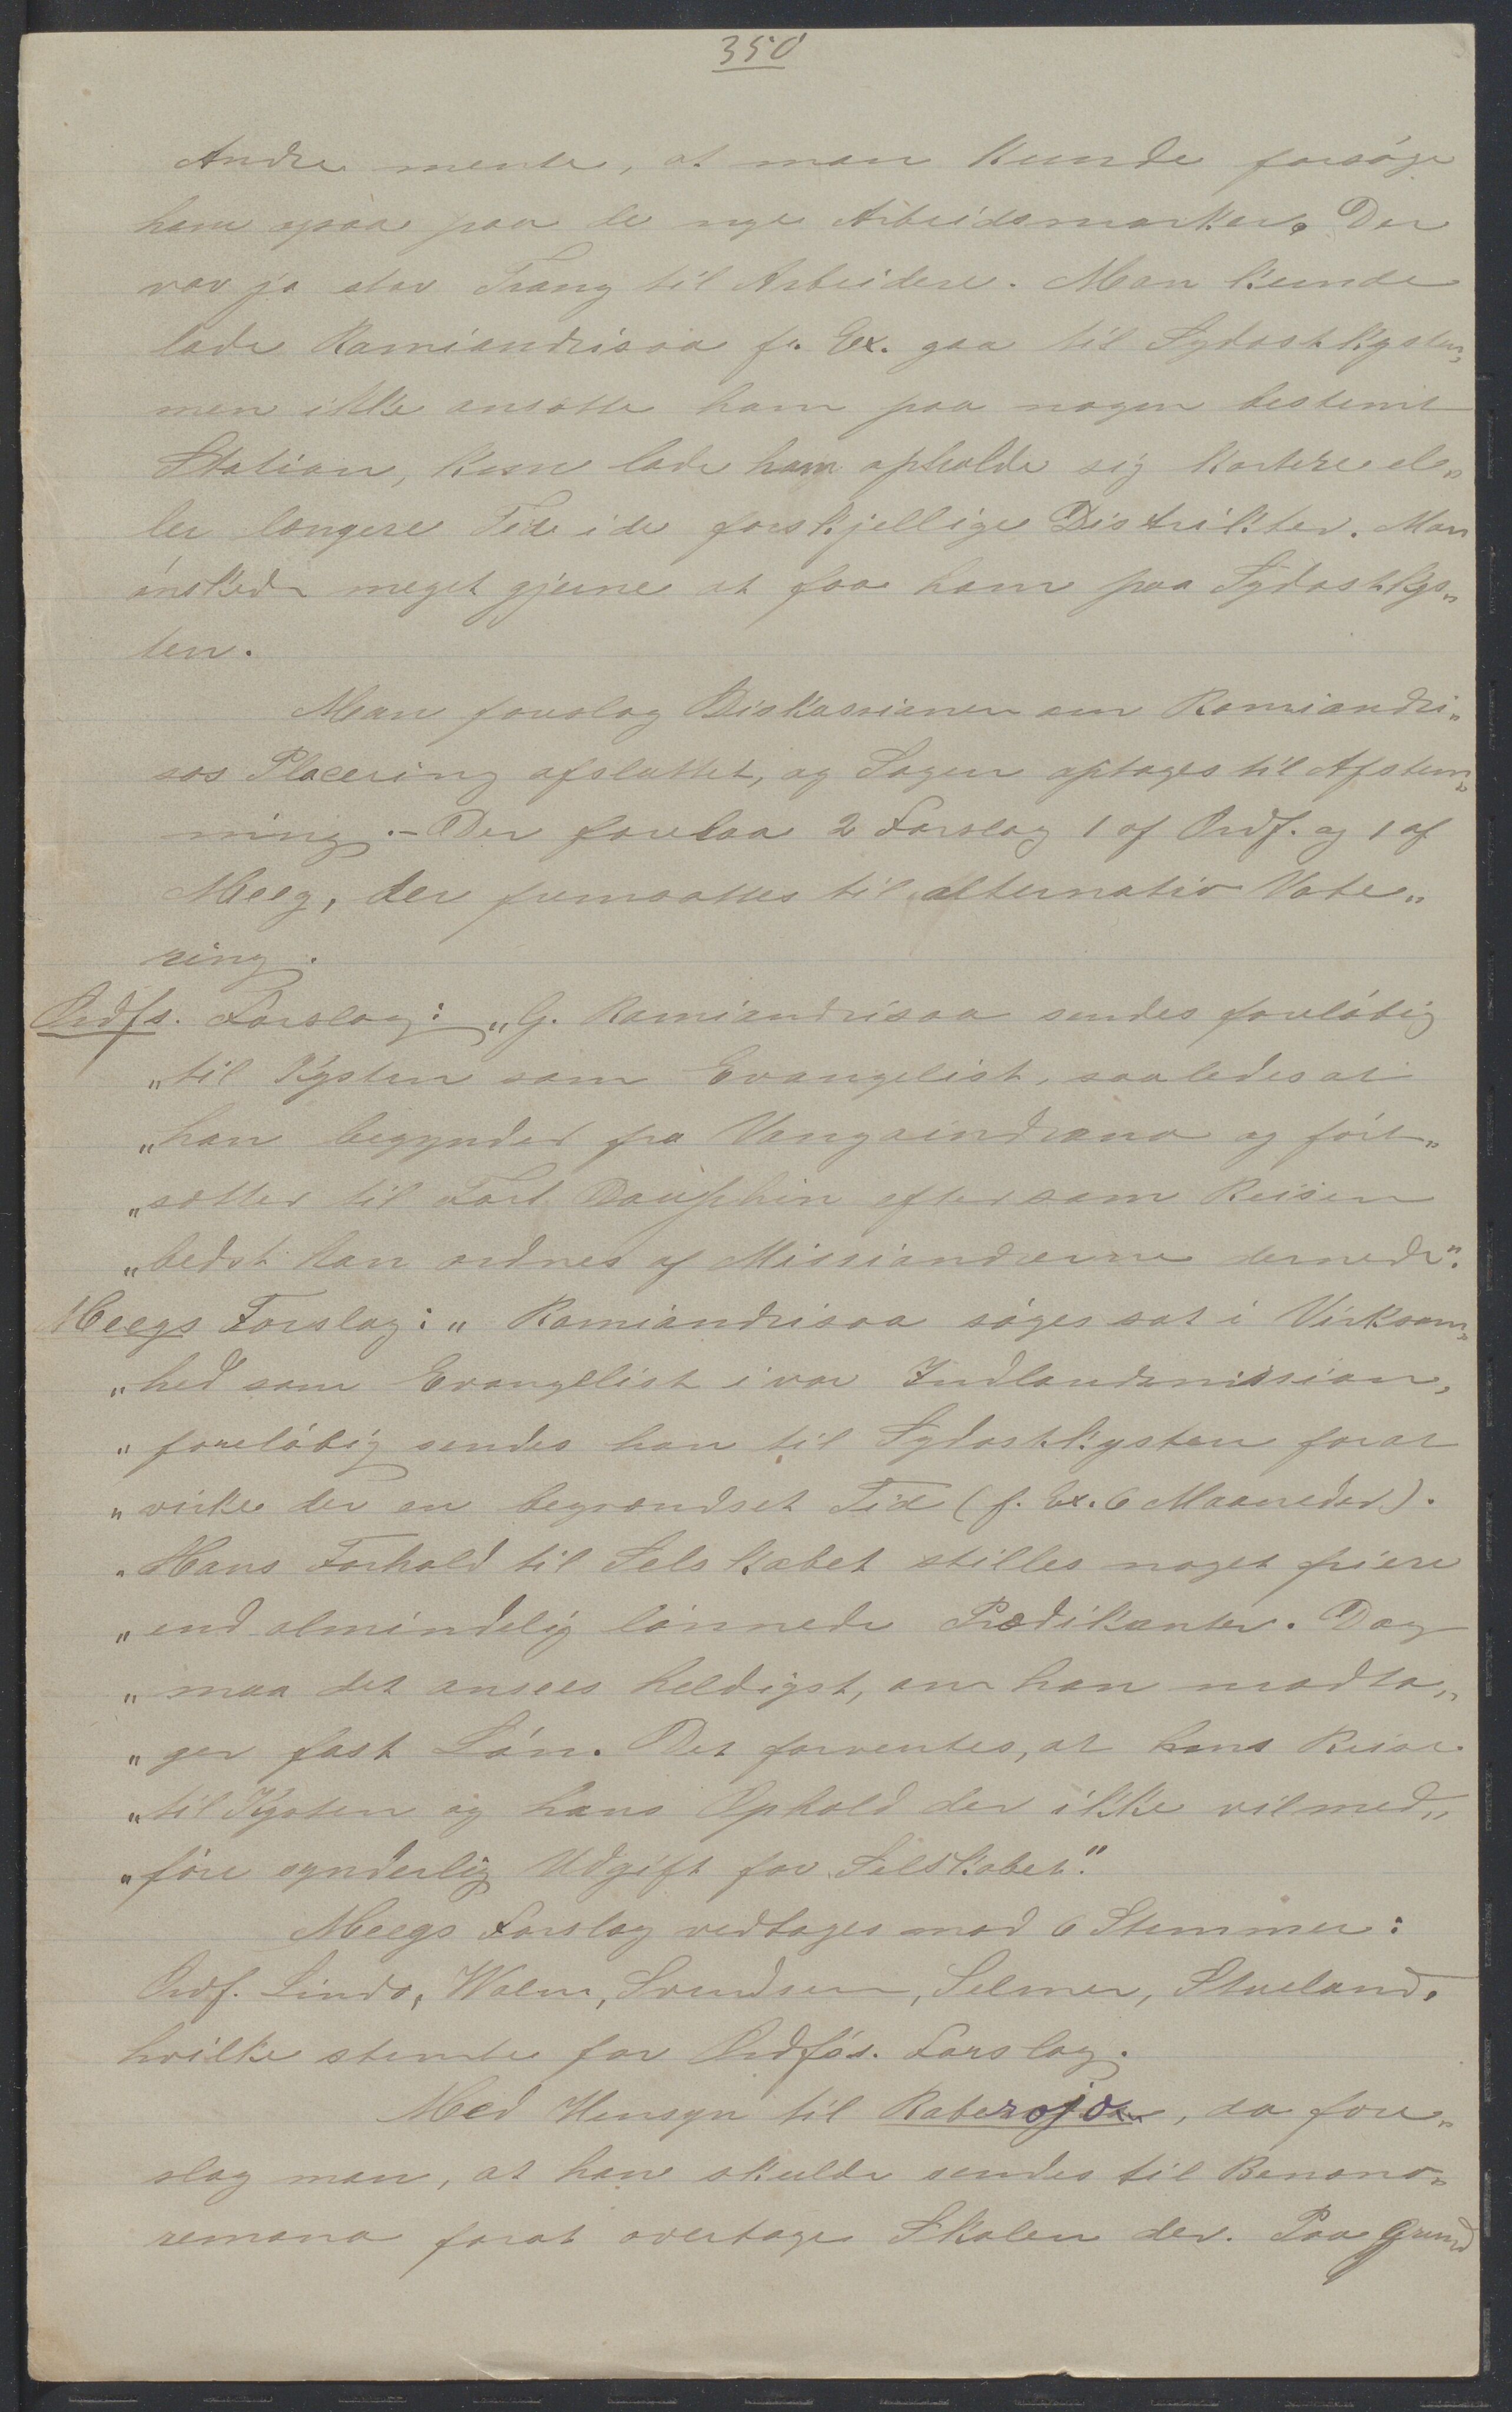 350
Andre mente, at man kunde forsøge
ham ogsaa paa de nye Arbeidsmarker. Der
var jo stor Trang til Arbeidere. Man kunde
lade Ramiandrisoa f. Ex. gaa til Sydostkysten,
men ikke ansætte ham paa nogen bestemt
Station, kun lade ham opholde sig kortere el„
ler længere Tid i de forskjellige Distrikter. Man
ønskede meget gjerne at faa ham paa Sydostkys„
ten.
Man foreslog Diskussionen om Ramiandri„
soas Placering afsluttet, og Sagen optages til Afstem„
ning. – Der forelaa 2 Forslag 1 af Ordf. og 1 af
Meeg, der fremsattes til alternativ Vote„
ring.
Ordfs. Forslag: „G. Ramiandrisoa sendes foreløbig
„til Kysten som Evangelist, saaledes at
„han begynder fra Vangaindrano og fort„
„sætter til Fort Dauphin eftersom Reisen
„bedst kan ordnes af Missionærerne dernede".
Meegs Forslag: „Ramiandrisoa søges sat i Virksom„
„hed som Evangelist i vor Indlandsmission,
„foreløbig sendes han til Sydostkysten forat
„virke der en begrændset Tid (f. Ex. 6 Maaneder).
„Hans Forhold til Selskabet stilles noget friere
„end almindelig lønnede Prædikanter. Dog
„maa det ansees heldigst, om han modta„
„ger fast Løn. Det forventes, at hans Reise
„til Kysten og hans Ophold der ikke vil med„
„føre synderlig Udgift for Selskabet."
Meegs Forslag vedtages mod 6 Stemmer:
Ordf. Lindo, Walen, Svendsen, Selmer, Stueland,
hvilke stemte for Ordførs. Forslag.
Med Hensyn til , da fore„
slog man, at han skulde sendes til Benono„
remana forat overtage Skolen der. Paa Grund